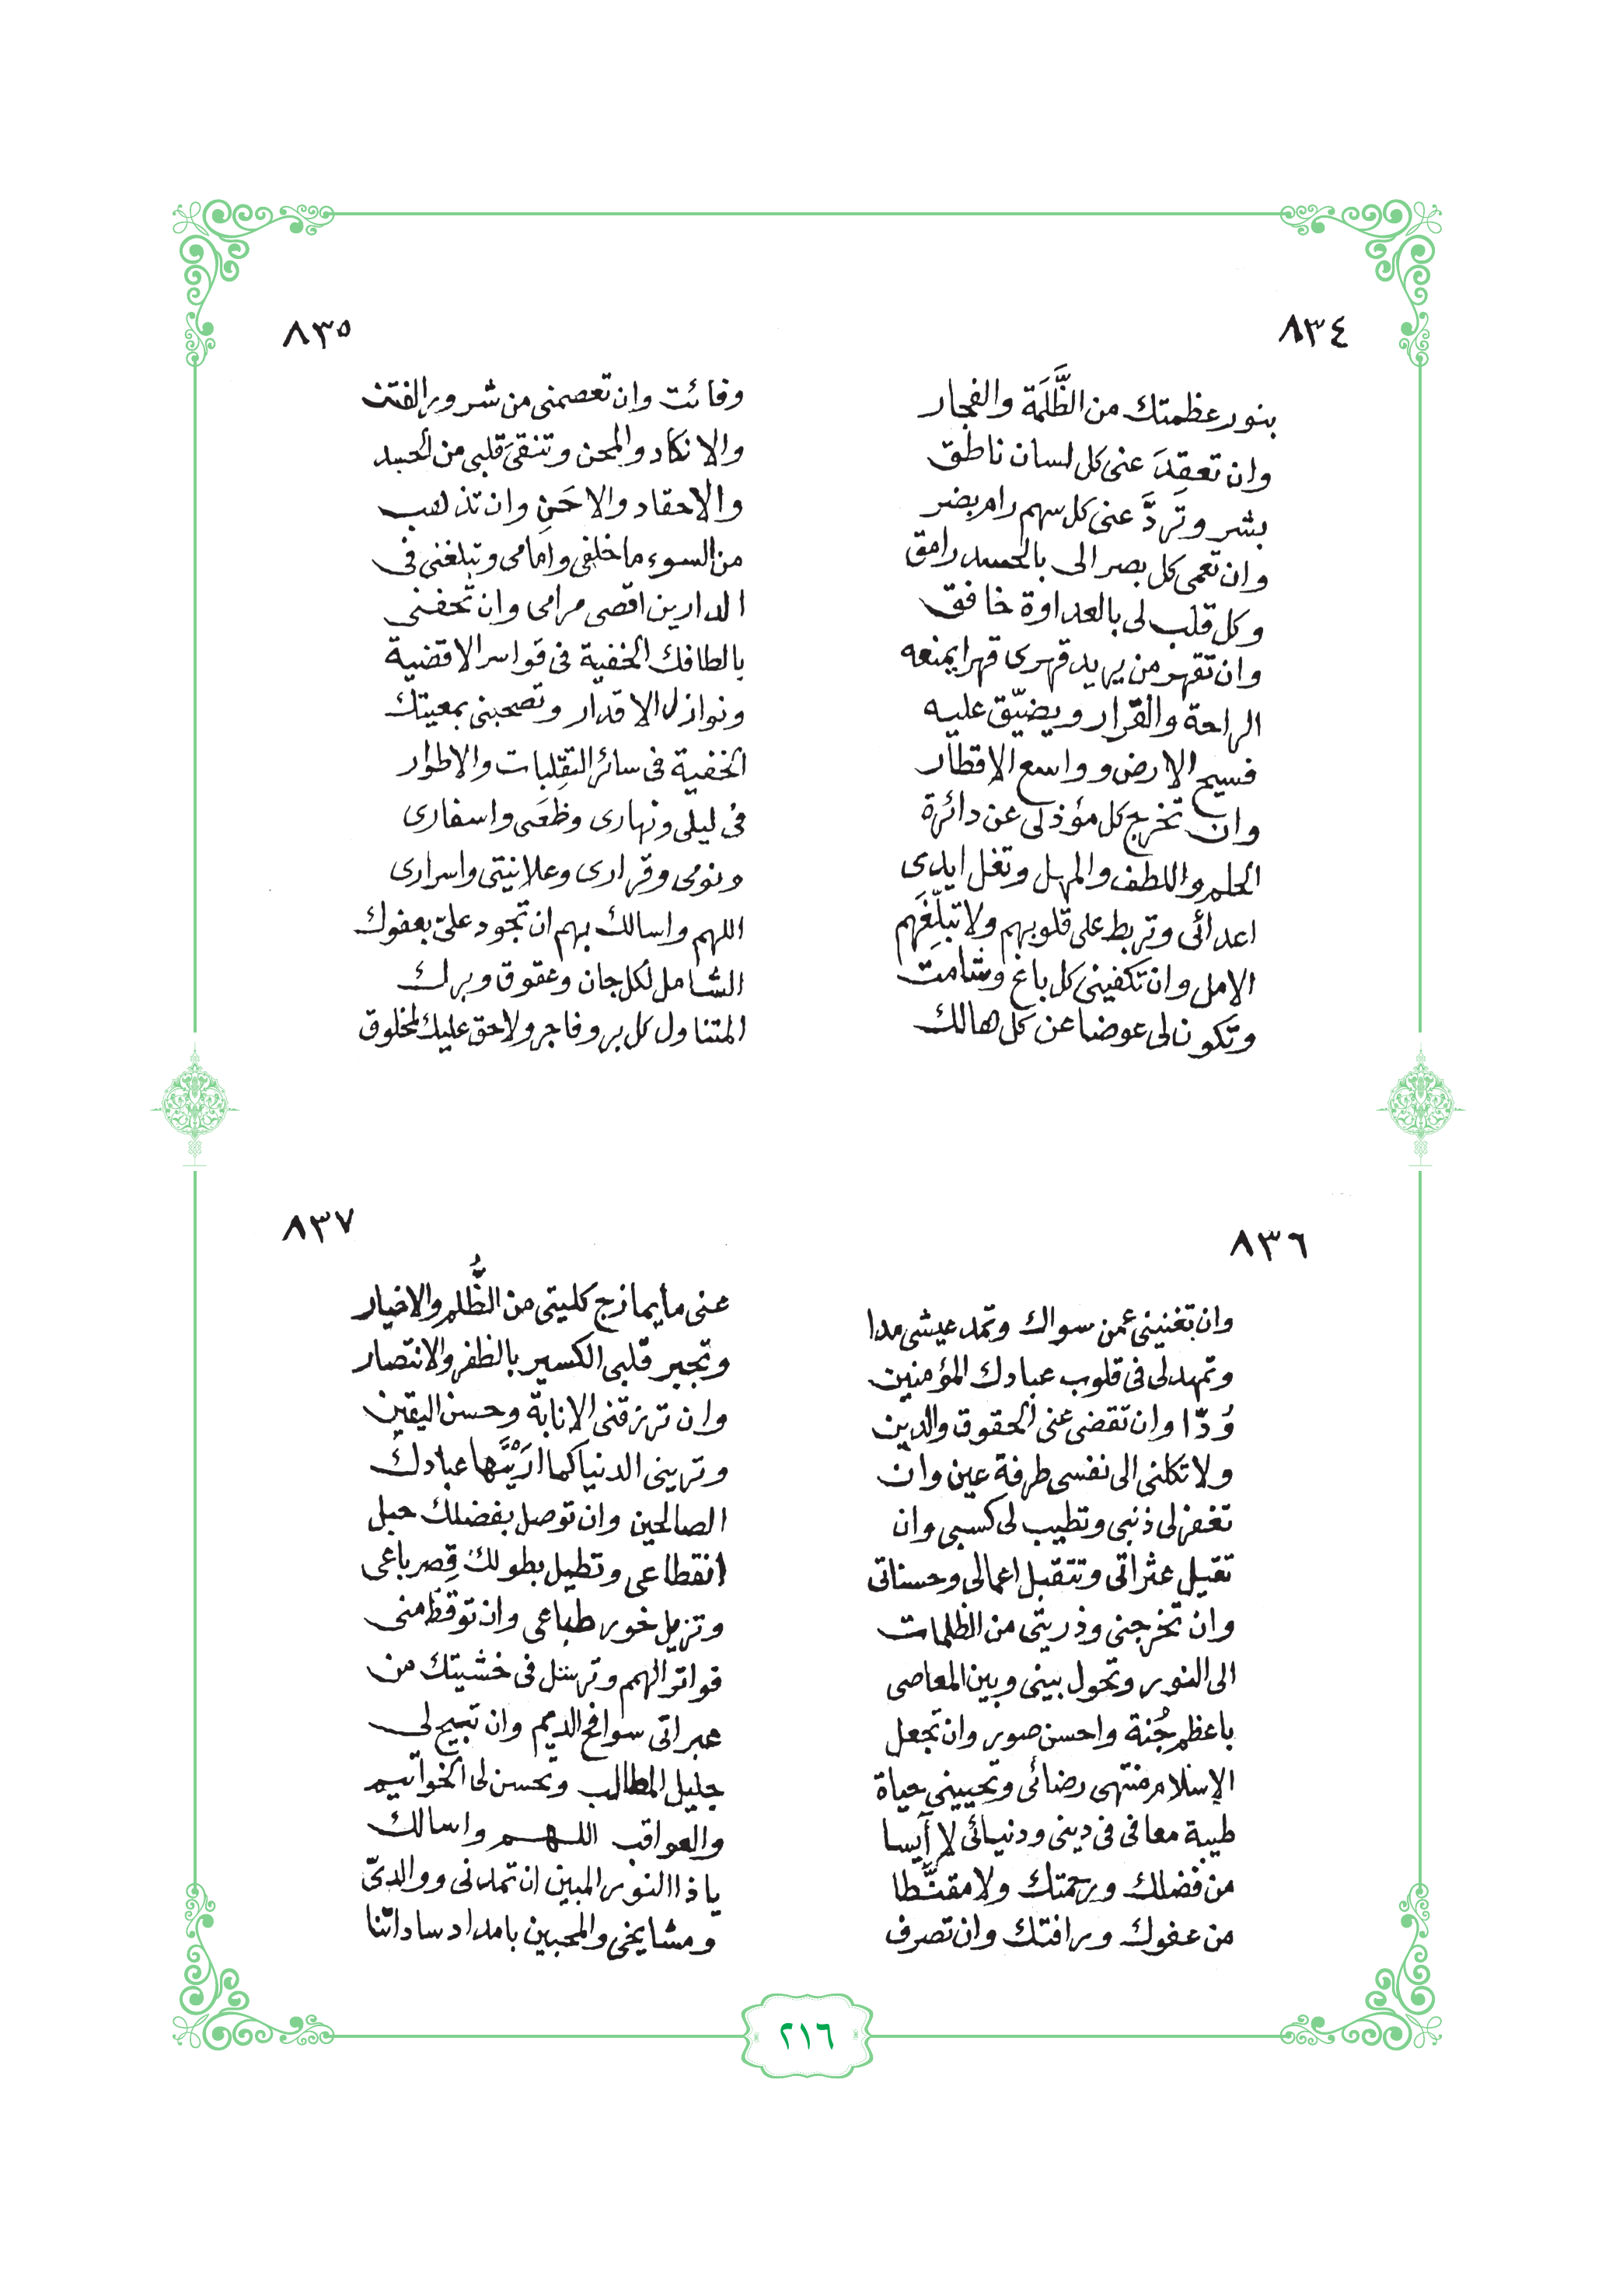 ٨٣٤
بنور عظمتك من الظَّلَمَة والفجار
وان تعقِدَ عنى كل لسان ناطق
بشر وتَردَّ عنى كل سهم رام بضر
وان تعمى كل بصر الى بالحسد رامق
وكل قلب لى بالعداوة خافق
وان تقهر من يريد قهرى قهرا يمنعه
الراحة والقرار ويضيّق عليه
فسيح الارض وواسع الاقطار
وان تخرج كل مؤذ لى عن دائرة
الحلم واللطف والمهل وتغل ايدى
اعدائى وتربط على قلوبهم ولا تبلّغَهم
الامل وان تكفينى كل باغ وشامت
وتكون لى عوضا عن كل هالك
٨٣٥
وفائت وان تعصمنى من شرور الفتن
والانكاد والمحن وتنقىَ قلبى من الحسد
والاحقاد والاحَنِ وان تذهب
من السوء ما خلفى وامامى وتبلغنى فى
الدارين اقصى مرامى وان تحفنى
بالطافك الخفية فى قواسر الاقضية
ونوازل الاقدار وتصحبنى بمعيتك
الخفية فى سائر التقلبات والاطوار
فى ليلى ونهارى وظعَنى واسفارى
ونومى وقرارى وعلانيتى واسرارى
اللهم واسالك بهم ان تجود علىّ بعفوك
الشامل لكل جان وعقوق وبرك
المتناول كل بر وفاجر ولاحق عليك لمخلوق
٨٣٦
وان تغنينى عمن سواك وتمد عيشى مدا
وتمهد لى فى قلوب عبادك المؤمنين
وُدّا وان تقضى عنى الحقوق والدين
ولا تكلنى الى نفسى طرفة عين وان
تغفر لى ذنبى وتطيب لى كسبى وان
تقيل عثراتى وتتقبل اعمالى وحسناتى
وان تخرجنى وذريتى من الظلمات
الى النور وتحول بينى وبين المعاصى
باعظم جُنة واحسن صور وان تجعل
الإسلام منتهى رضائى وتحيينى حياة
طيبة معافى فى دينى ودنيائى لا آيسا
من فضلك ورحمتك ولا مقنّطا
من عفوك ورافتك وان تصرف
٨٣٧
عنى ما يمازج كليتى من الظُّلم والاخيار
وتجبر قلبى الكسير بالظفر والانتصار
وان ترزقنى الانابة وحسن اليقين
وترينى الدنيا كما ارَيْتَها عبادك
الصالحين وان توصل بفضلك حبل
انقطاعى وتطيل بطولك قِصر باعى
وتزيل خور طباعى وان توقظ منى
فواتر الهمم وترسل فى خشيتك من
عبراتى سوافح الديم وان تبيح لى
جليل المطالب وتحسن لى الخواتيم
والعواقب اللهم واسالك
يا ذا النور المبين ان تمدنى ووالدىّ
ومشايخى والمحبين بامداد ساداتنا
٢١٦